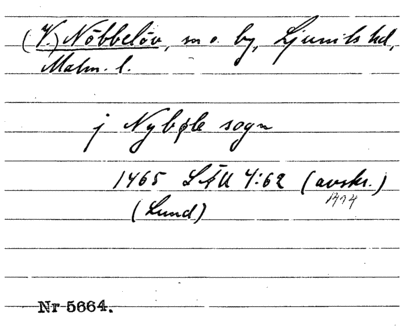 (V.) Nöbbelöv, sn o. by, Ljunits hd,
Malm. l.
j Nybøle sogn
1465 LÄU 4:62 (avskr.)
(Lund) 1494
Nr 5664.